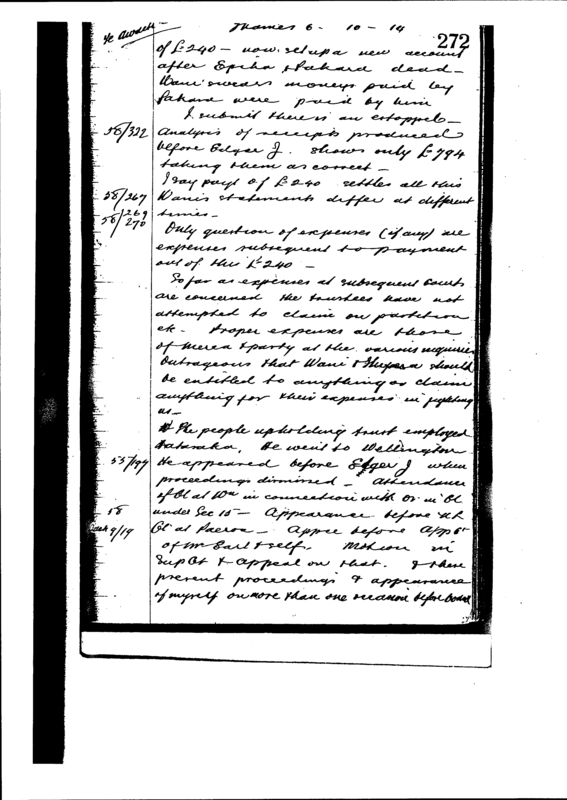 Thames 6 - 10 - 14
272
of £240 - now set up a new account
after Epiha & Pakara dead -
Wani swears moneys paid by
Pakara were paid by him
I submit there is an estoppel -
58/322 Analysis of receipts produced
before Edger J. shows only £794
taking them as correct -
I say payt of £240 settles all this
58/267 Wani's statements differ at different
58/269 270 times -
Only question of expenses (if any) are
expenses subsequent to payment
out of the £240 -
So far as expenses at subsequent Courts
are concerned the trustees have not
attempted to claim on partition
etc. Proper expenses are those
of Merea & party at the various inquiries
Outrageous that Wani & should
be entitled to anything or claim
anything for their expenses in fighting
us -
The people upholding trust employed
He went to Wellington
55/197 He appeared before Edger J when
proceedings dismissed - Attendance
of Ct at Wn in connection with O in Cl
58 under Sec 10 - Appearance before
9/19 Ct at Paeroa - Appce before App Ct
of Mr Earl & self. Motion in
Sup Ct & Appeal on that. & these
present proceedings & appearance
of myself on more than one occasion before